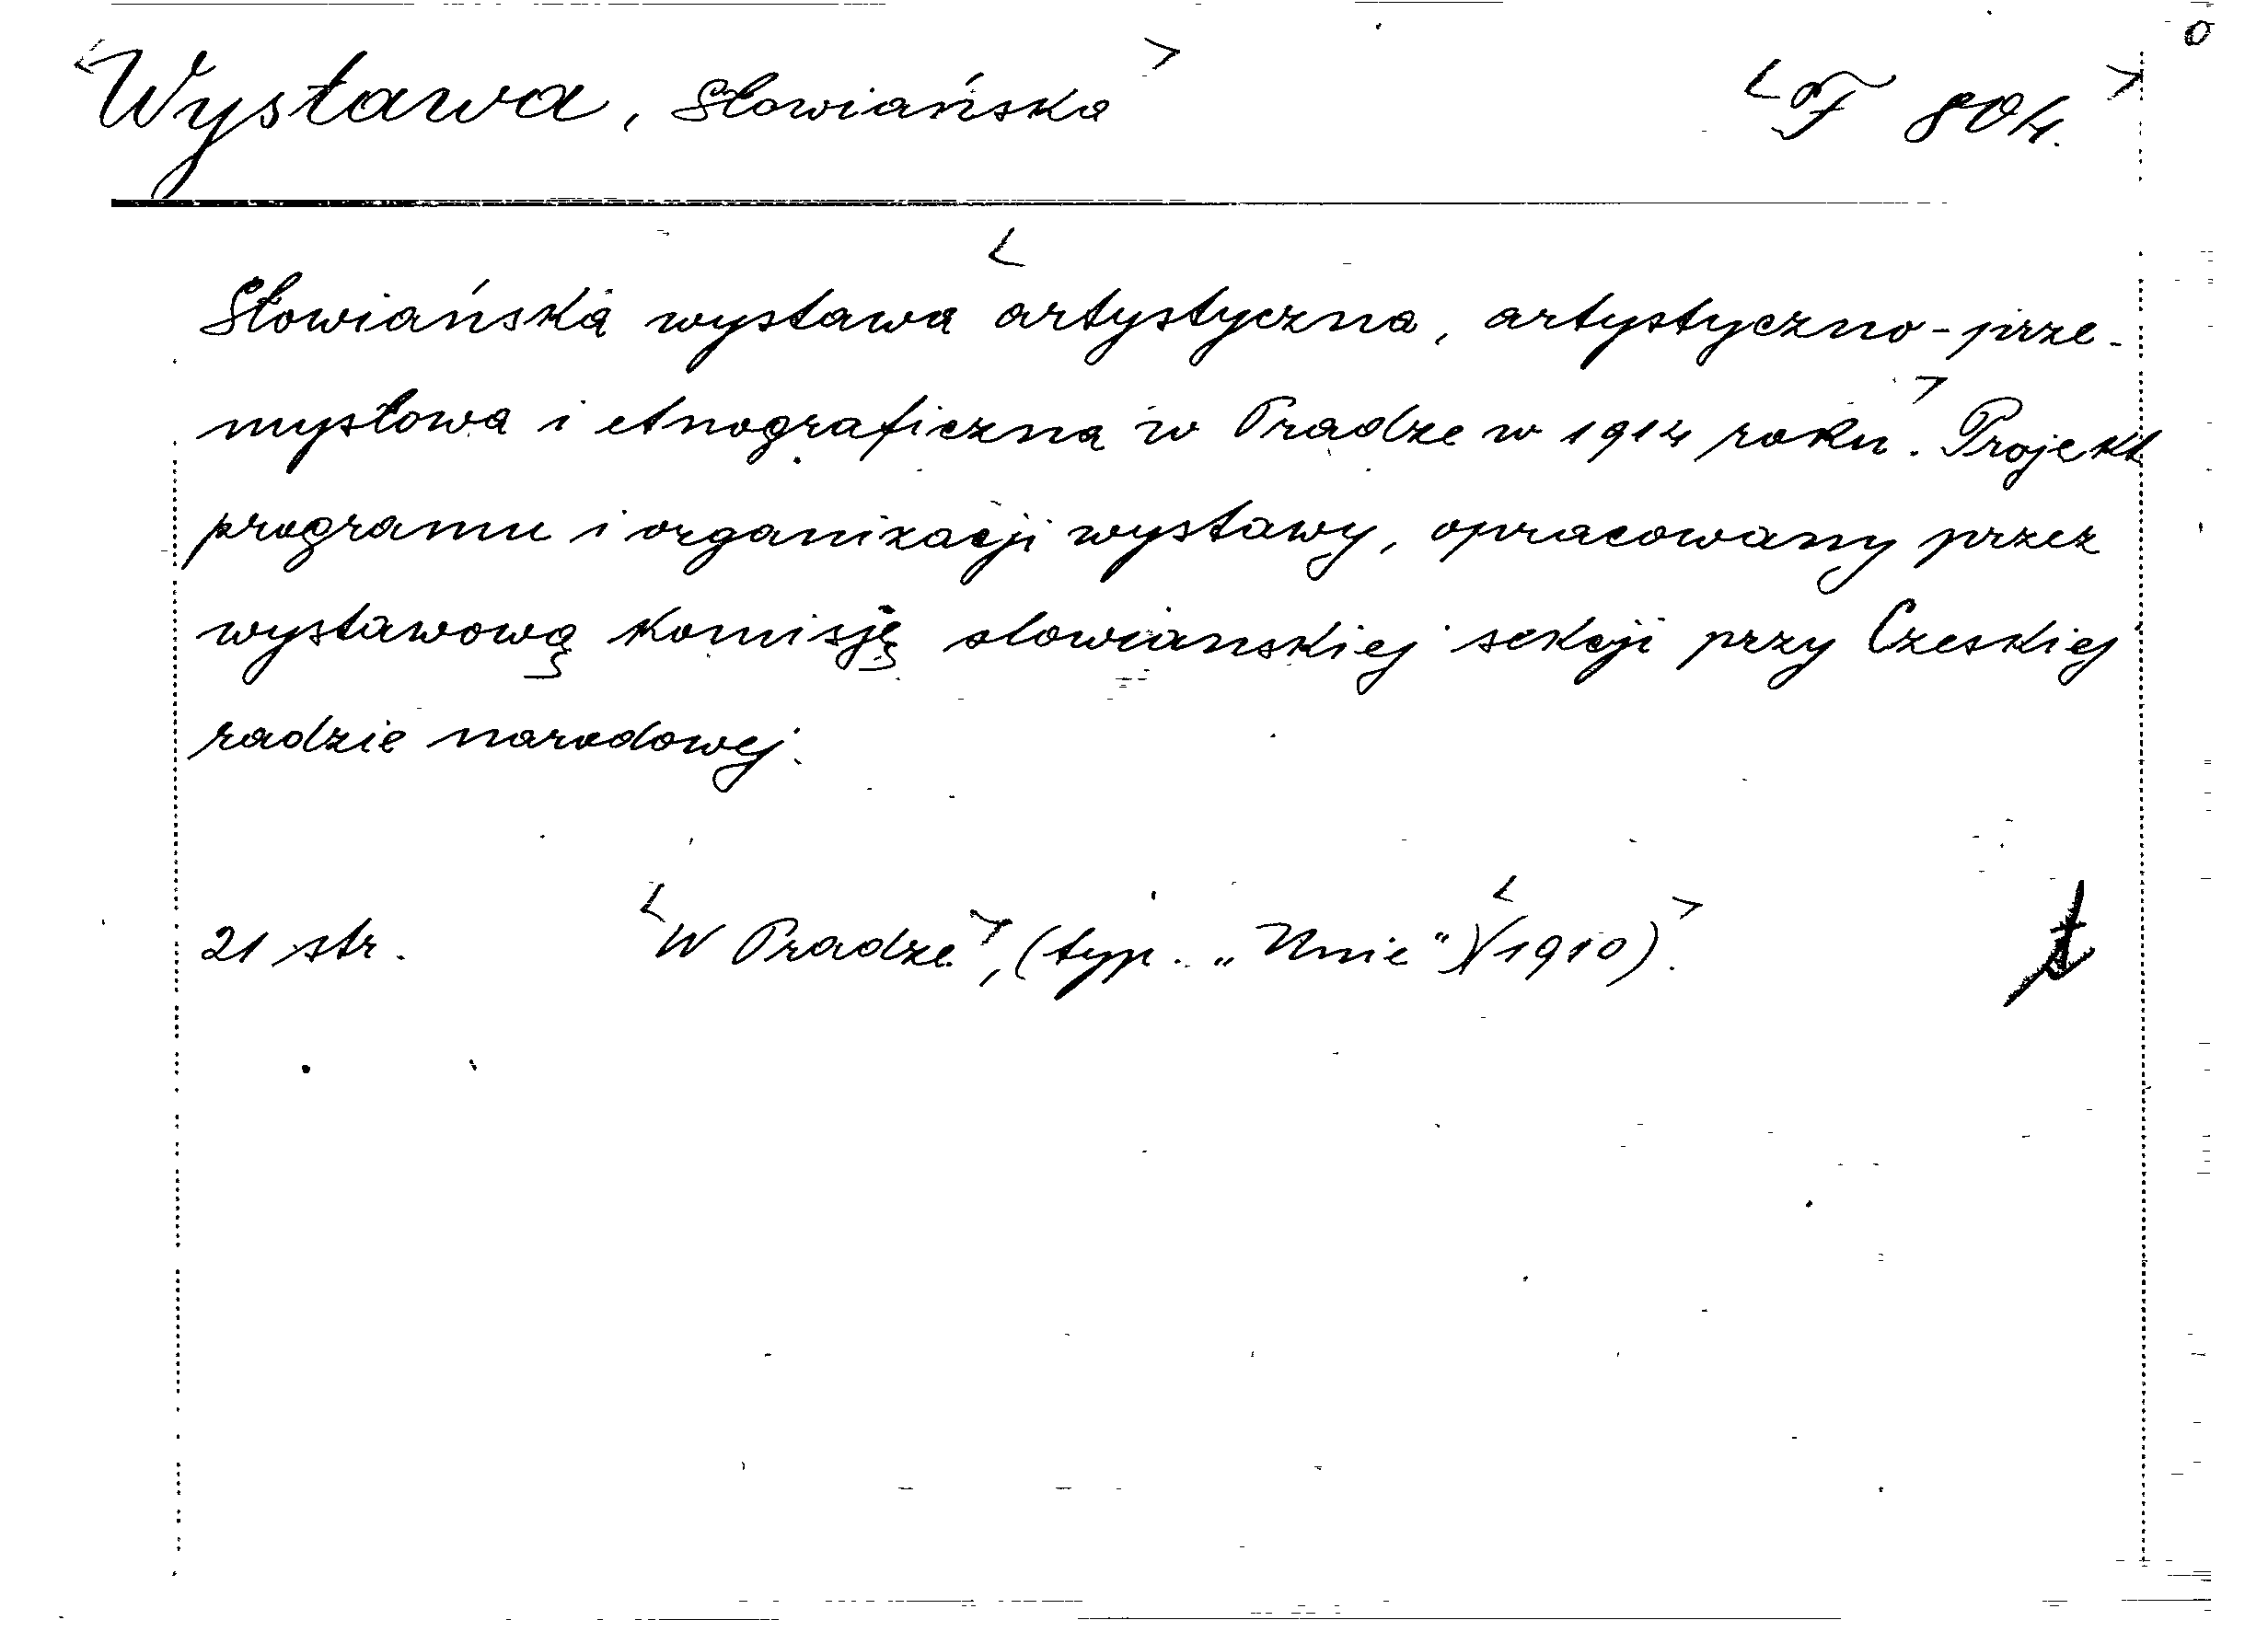 o
<Wystawa, Słowiańska> <F 804.>
Słowiańska wystawa <artystyczna, artystyczno-prze-
mysłowa i etnograficzna w Pradze w 1914 roku>. Projekt
programu i organizacji wystawy, opracowany przez
wystawową komisję slowianskiej sekcji przy Czeskiej
radzie narodowej.
21 str. <W Pradze>, (typ. „Unie") <(1910)>.